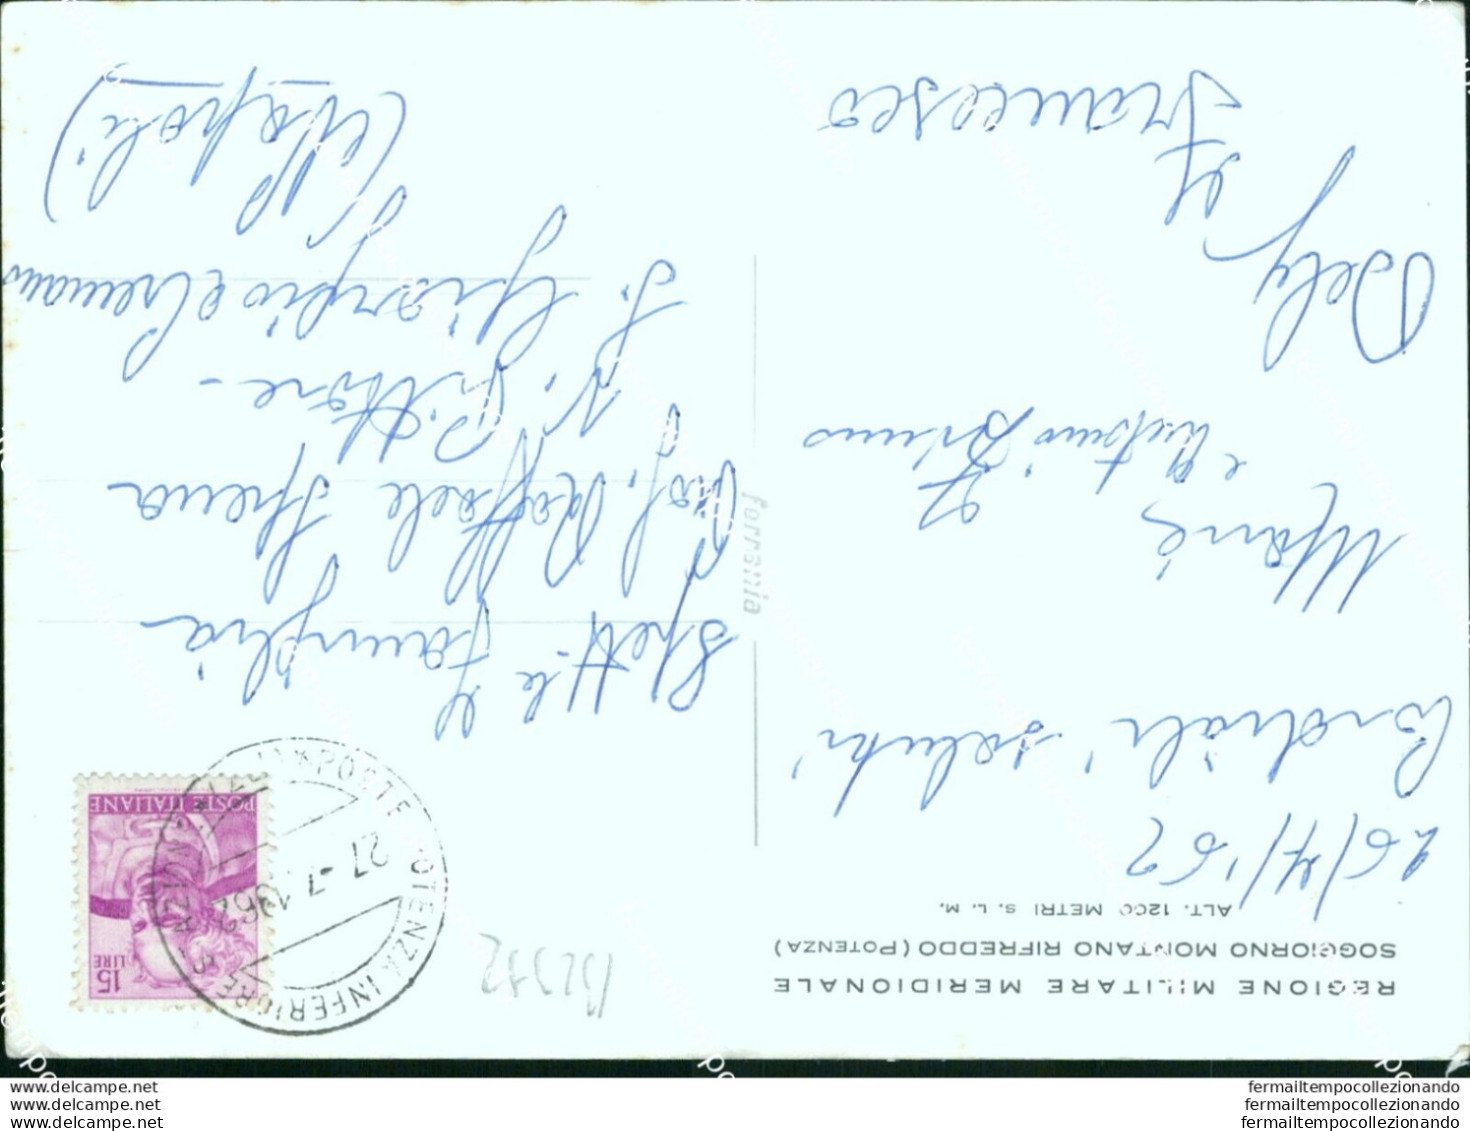 REGIONE MILITARE MERIDIONALE
SOGGIORNO MONTANO RIFREDDO (POTENZA)
ALT. 1200 METRI S. L. M.
26/7/'62
Cordiali saluti
e Antonio Bruno
Francesco
ferrania
B2372
POSTE ITALIANE
15
LIRE
POSTE POTENZA INFERIORE
27-7-1962
Spett.le Famiglia
Prof. Raffaele Spena
Pittore -
S. Giorgio a Cremano
(Napoli)
www.delcampe.net
www.delcampe.net
www.delcampe.net
fermailtempocollezionando
fermailtempocollezionando
fermailtempocollezionando